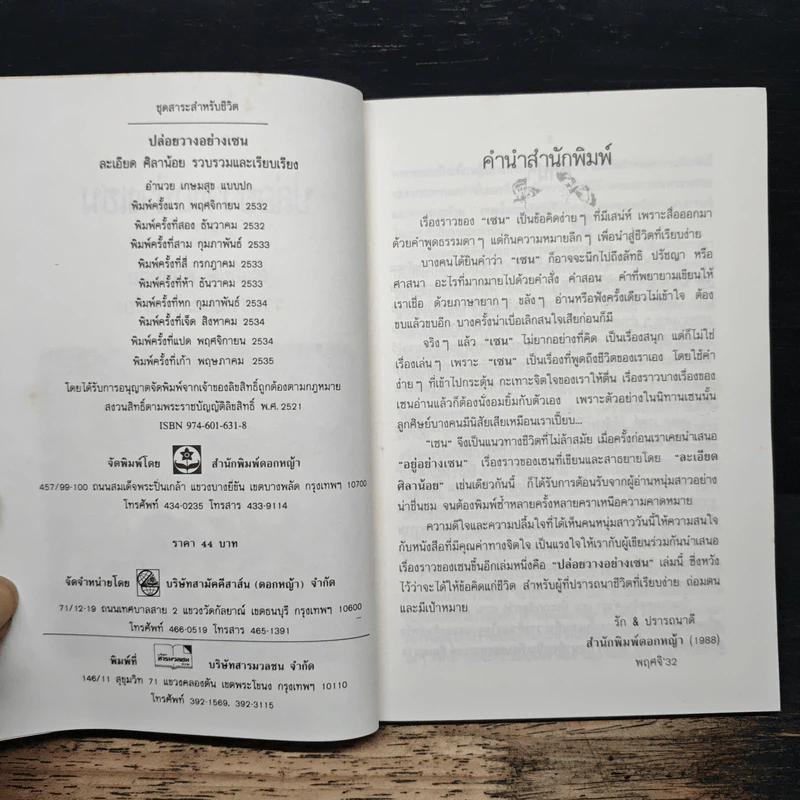 ชุดสาระสำหรับชีวิต
ปล่อยวางอย่างเซน
ละเอียด ศิลาน้อย รวบรวมและเรียบเรียง
อำนวย เกษมสุข แบบปก
พิมพ์ครั้งแรก พฤศจิกายน 2532
พิมพ์ครั้งที่สอง ธันวาคม 2532
พิมพ์ครั้งที่สาม กุมภาพันธ์ 2533
พิมพ์ครั้งที่สี่ กรกฎาคม 2533
พิมพ์ครั้งที่ห้า ธันวาคม 2533
พิมพ์ครั้งที่หก กุมภาพันธ์ 2534
พิมพ์ครั้งที่เจ็ด สิงหาคม 2534
พิมพ์ครั้งที่แปด พฤศจิกายน 2534
พิมพ์ครั้งที่เก้า พฤษภาคม 2535
โดยได้รับการอนุญาตจัดพิมพ์จากเจ้าของลิขสิทธิ์ถูกต้องตามกฎหมาย
สงวนสิทธิ์ตามพระราชบัญญัติลิขสิทธิ์ พ.ศ. 2521
ISBN 974-601-631-8
จัดพิมพ์โดย สำนักพิมพ์ดอกหญ้า
457/99-100 ถนนสมเด็จพระปิ่นเกล้า แขวงบางยี่ขัน เขตบางพลัด กรุงเทพฯ 10700
โทรศัพท์ 434-0235 โทรสาร 433-9114
ราคา 44 บาท
จัดจำหน่ายโดย บริษัทสามัคคีสาส์น (ดอกหญ้า) จำกัด
71/12-19 ถนนเทศบาลสาย 2 แขวงวัดกัลยาณ์ เขตธนบุรี กรุงเทพฯ 10600
โทรศัพท์ 466-0519 โทรสาร 465-1391
พิมพ์ที่ สารมวลชน บริษัทสารมวลชน จำกัด
146/11 สุขุมวิท 71 แขวงคลองตัน เขตพระโขนง กรุงเทพฯ 10110
โทรศัพท์ 392-1569, 392-3115
คำนำสำนักพิมพ์
เรื่องราวของ "เซน" เป็นข้อคิดง่ายๆ ที่มีเสน่ห์ เพราะสื่อออกมา
ด้วยคำพูดธรรมดาๆ แต่กินความหมายลึกๆ เพื่อนำสู่ชีวิตที่เรียบง่าย
บางคนได้ยินคำว่า "เซน" ก็อาจจะนึกไปถึงลัทธิ ปรัชญา หรือ
ศาสนา อะไรที่มากมายไปด้วยคำสั่ง คำสอน คำที่พยายามเขียนให้
เราเชื่อ ด้วยภาษายากๆ ขลังๆ อ่านหรือฟังครั้งเดียวไม่เข้าใจ ต้อง
ขบแล้วขบอีก บางครั้งน่าเบื่อเลิกสนใจเสียก่อนก็มี
จริงๆ แล้ว "เซน" ไม่ยากอย่างที่คิด เป็นเรื่องสนุก แต่ก็ไม่ใช่
เรื่องเล่นๆ เพราะ "เซน" เป็นเรื่องที่พูดถึงชีวิตของเราเอง โดยใช้คำ
ง่ายๆ ที่เข้าไปกระตุ้น กะเทาะจิตใจของเราให้ตื่น เรื่องราวบางเรื่องของ
เซนอ่านแล้วก็ต้องนั่งอมยิ้มกับตัวเอง เพราะตัวอย่างในนิทานเซนนั้น
ลูกศิษย์บางคนมีนิสัยเสียเหมือนเราเปี๊ยบ...
"เซน" จึงเป็นแนวทางชีวิตที่ไม่ล้าสมัย เมื่อครั้งก่อนเราเคยนำเสนอ
"อยู่อย่างเซน" เรื่องราวของเซนที่เขียนและสาธยายโดย "ละเอียด
ศิลาน้อย" เช่นเดียวกันนี้ ก็ได้รับการต้อนรับจากผู้อ่านหนุ่มสาวอย่าง
น่าชื่นชม จนต้องพิมพ์ซ้ำหลายครั้งหลายคราเหนือความคาดหมาย
ความดีใจและความปลื้มใจที่ได้เห็นคนหนุ่มสาววันนี้ให้ความสนใจ
กับหนังสือที่มีคุณค่าทางจิตใจ เป็นแรงใจให้เรากับผู้เขียนร่วมกันนำเสนอ
เรื่องราวของเซนขึ้นอีกเล่มหนึ่งคือ "ปล่อยวางอย่างเซน" เล่มนี้ ซึ่งหวัง
ไว้ว่าจะได้ให้ข้อคิดแก่ชีวิต สำหรับผู้ที่ปรารถนาชีวิตที่เรียบง่าย ถ่อมตน
และมีเป้าหมาย
รัก & ปรารถนาดี
สำนักพิมพ์ดอกหญ้า (1988)
พฤศจิ'32